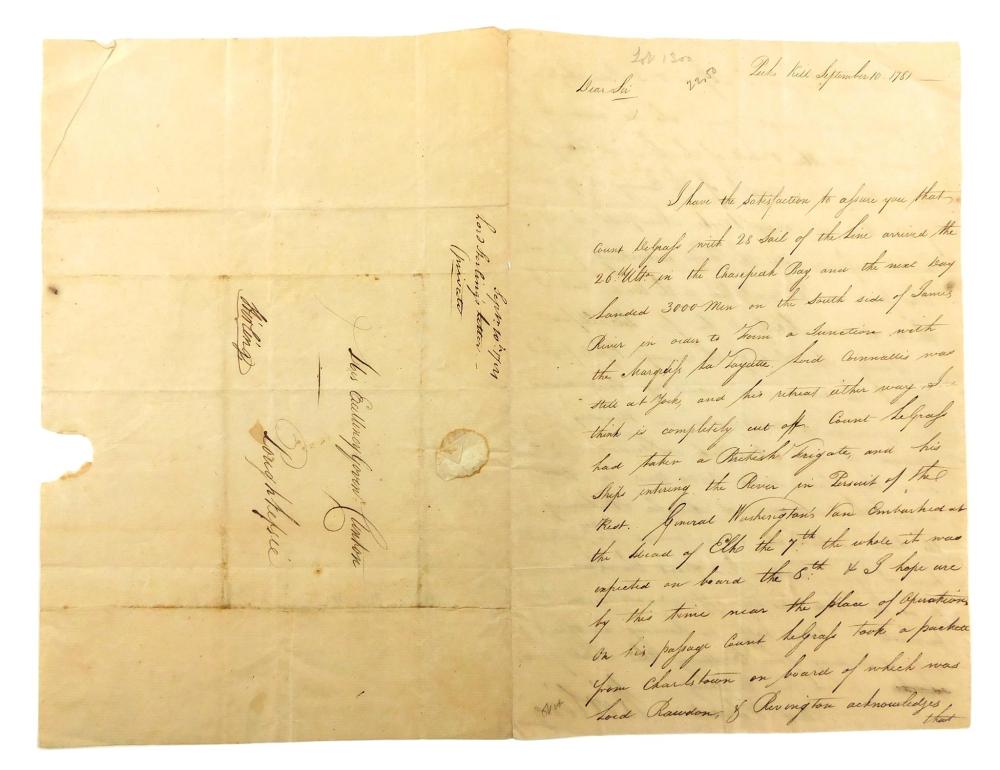 Septr. 10th. 1781
Lord Stirling's letter
(private)
His Excellency Govenr. Clinton
Poughkepsie
Stirling
Lot 1300
22.50
Peeks Kill September 10. 1781
Dear Sir
I have the satisfaction to assure you that
Count DeGrass with 28 Sail of the Line arrived the
26th Ulto. in the Chasepeak Bay, and the next Day
Landed 3000 Men on the South side of James
River in order to Form a Junction with
the Marquiss La Fayette. Lord Cornwallis was
still at York, and his retreat either way I
think is completely cut off. Count LeGrass
had taken a British Frigate, and his
Ships entering the River in Persuit of the
Rest. General Washington's Van Embarked at
the Head of Elk the 7th. the whole it was
expected on board the 8th. & I hope are
by this time near the place of Operations
On his passage Count LeGrass took a packett
from Charlstown on board of which was
Lord Rawdon, & Rivington acknowledges
that